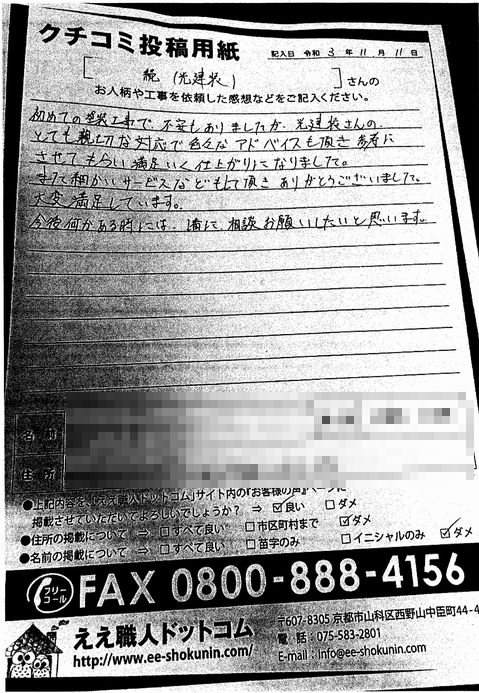 クチコミ投稿用紙
記入日 令和 3 年 11 月 11 日
[ 統 (光建装) ] さんの
お人柄や工事を依頼した感想などをご記入ください。
初めての塗装工事で、不安もありましたが、光建装さんの、
とても親切な対応で色々なアドバイスも頂き参考に
させてもらい満足いく仕上がりになりました。
また細かいサービスなどもして頂きありがとうございました。
大変満足しています。
今後何かある時には、 相談お願いしたいと思います。
名前
住所
●上記内容を『ええ職人ドットコム』サイト内の『お客様の声』ページに
掲載させていただいてよろしいでしょうか? ⇒ ☑良い □ダメ
●住所の掲載について ⇒ □すべて良い □市区町村まで ☑ダメ
●名前の掲載について ⇒ □すべて良い □苗字のみ □イニシャルのみ ☑ダメ
フリーコール FAX 0800-888-4156
ええ職人ドットコム
http://www.ee-shokunin.com/
〒607-8305 京都市山科区西野山中臣町44-4
電話:075-583-2801
E-mail:info@ee-shokunin.com